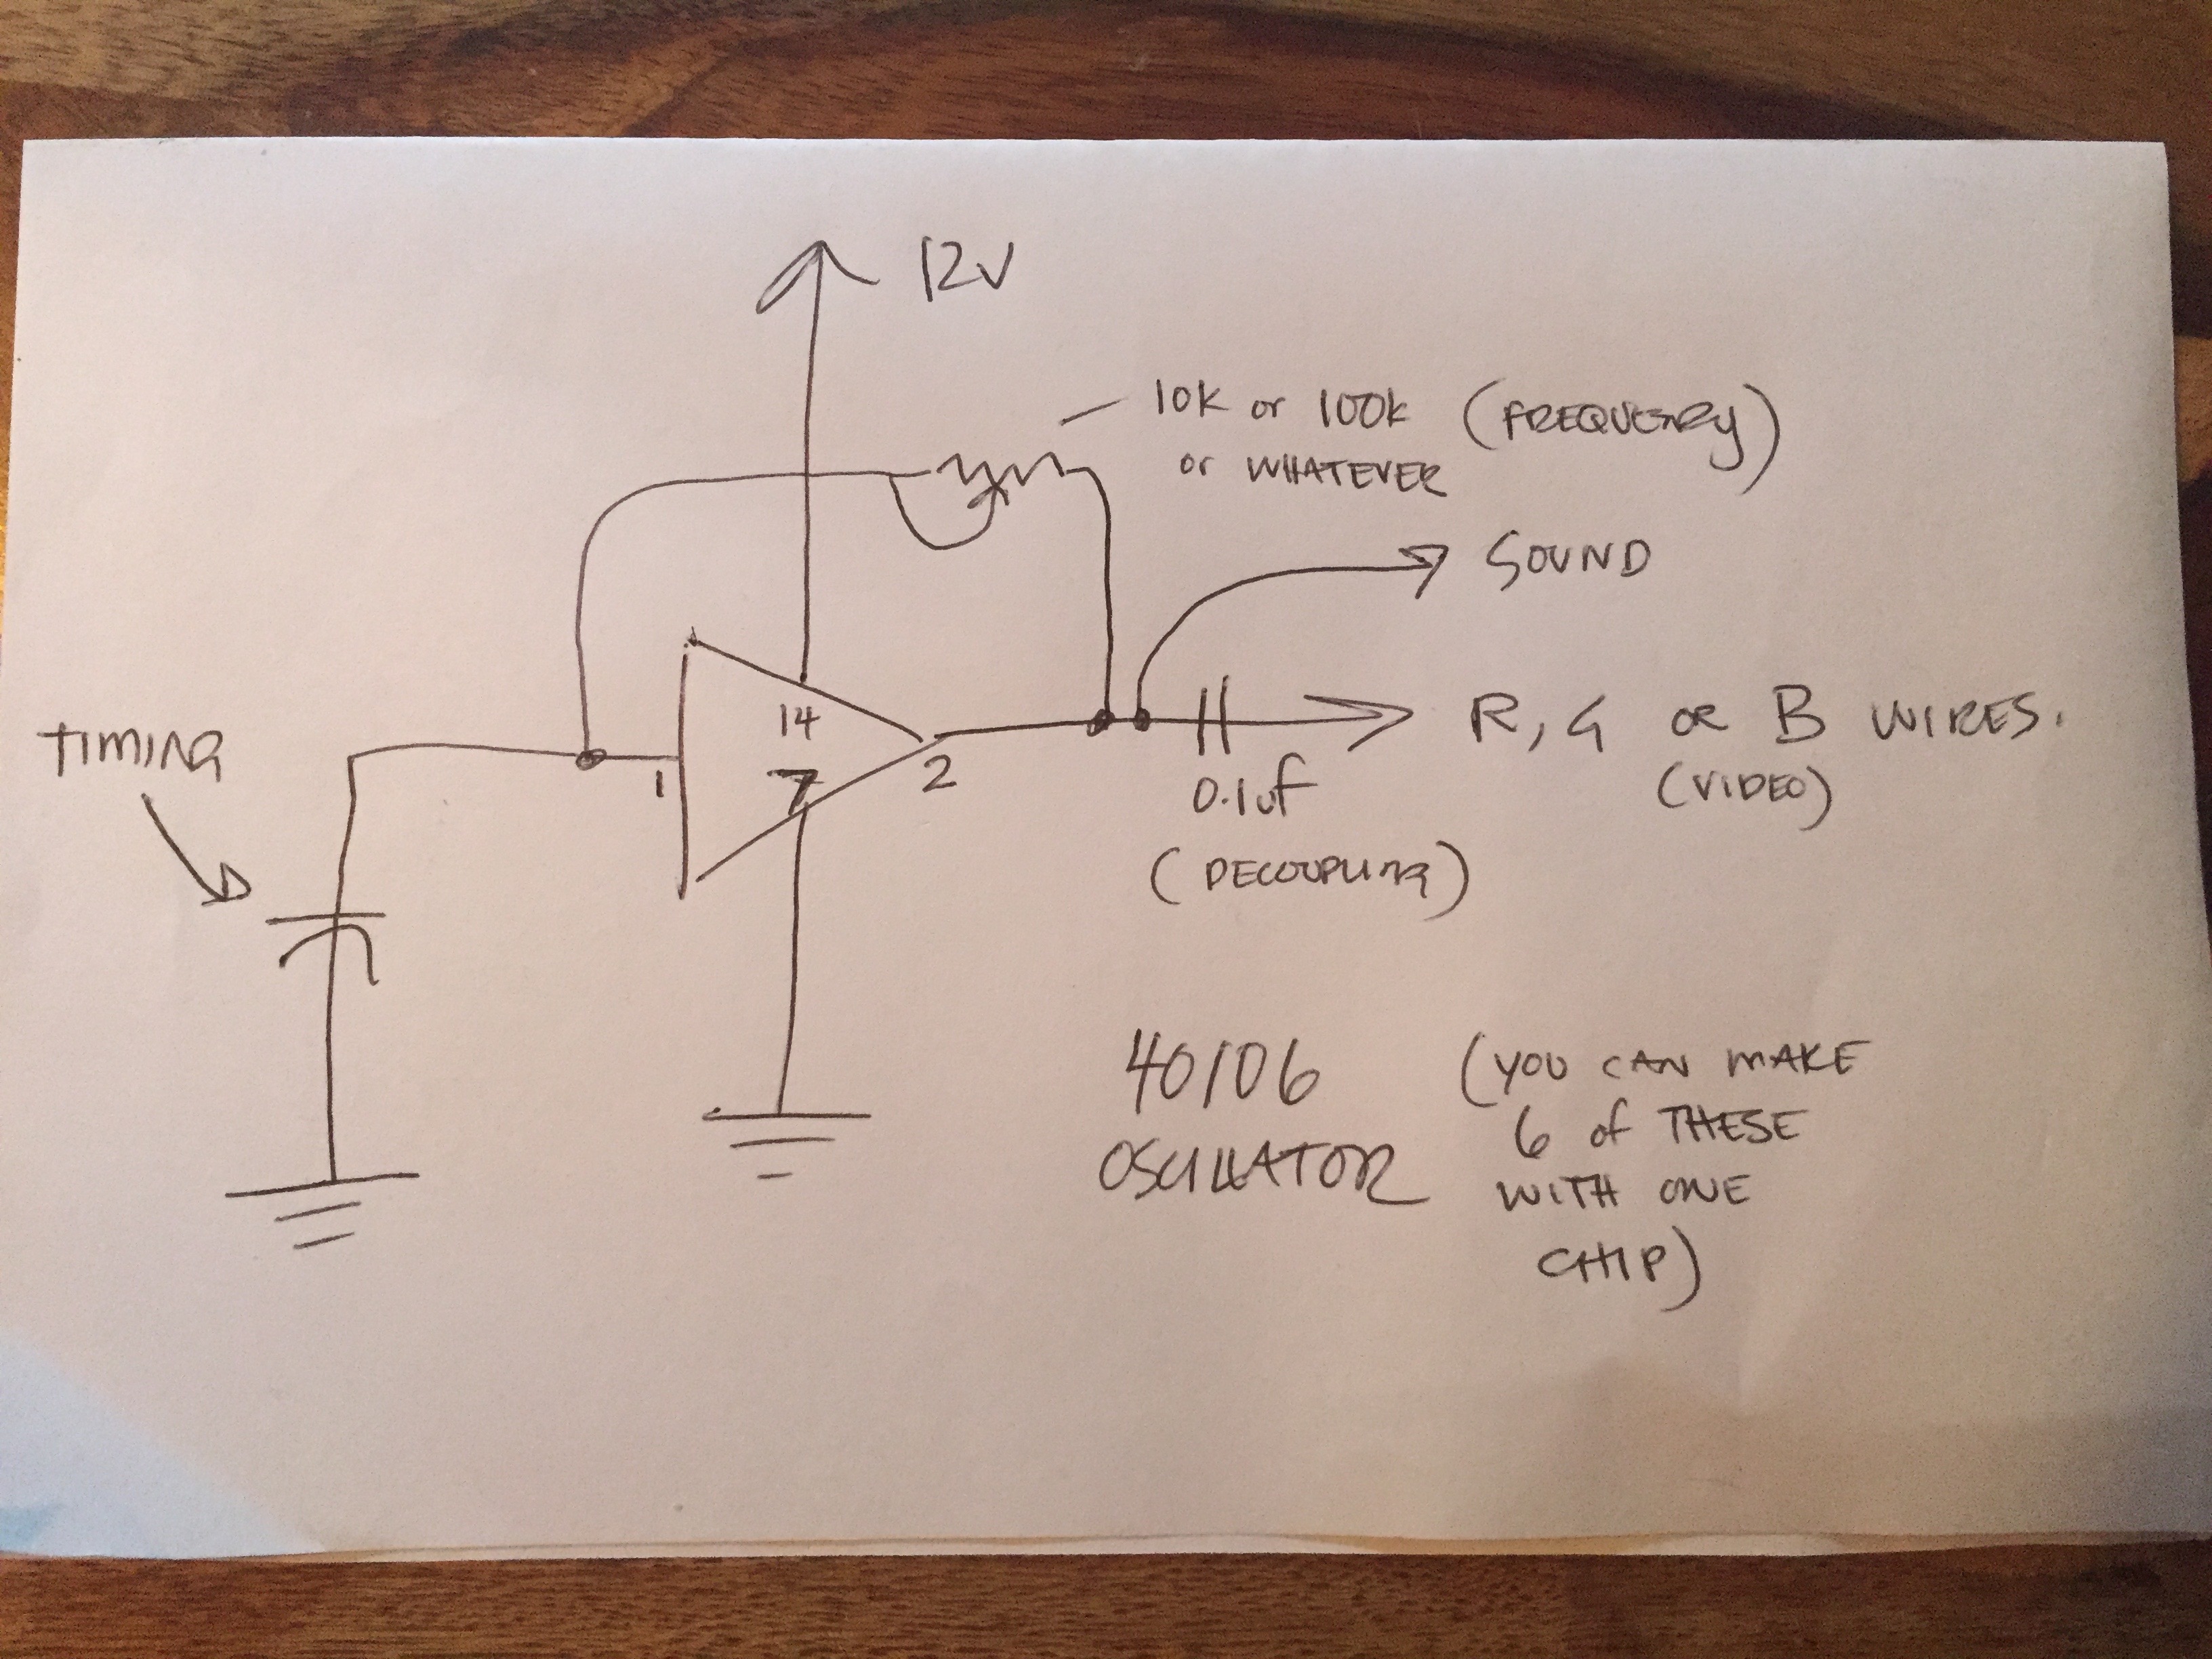 12V
10K or 100K (FREQUENCY)
or WHATEVER
SOUND
TIMING
14
1
7
2
R, G OR B WIRES.
(VIDEO)
0.1uf
(DECOUPLING)
40106
OSCILLATOR
(YOU CAN MAKE
6 of THESE
WITH ONE
CHIP)